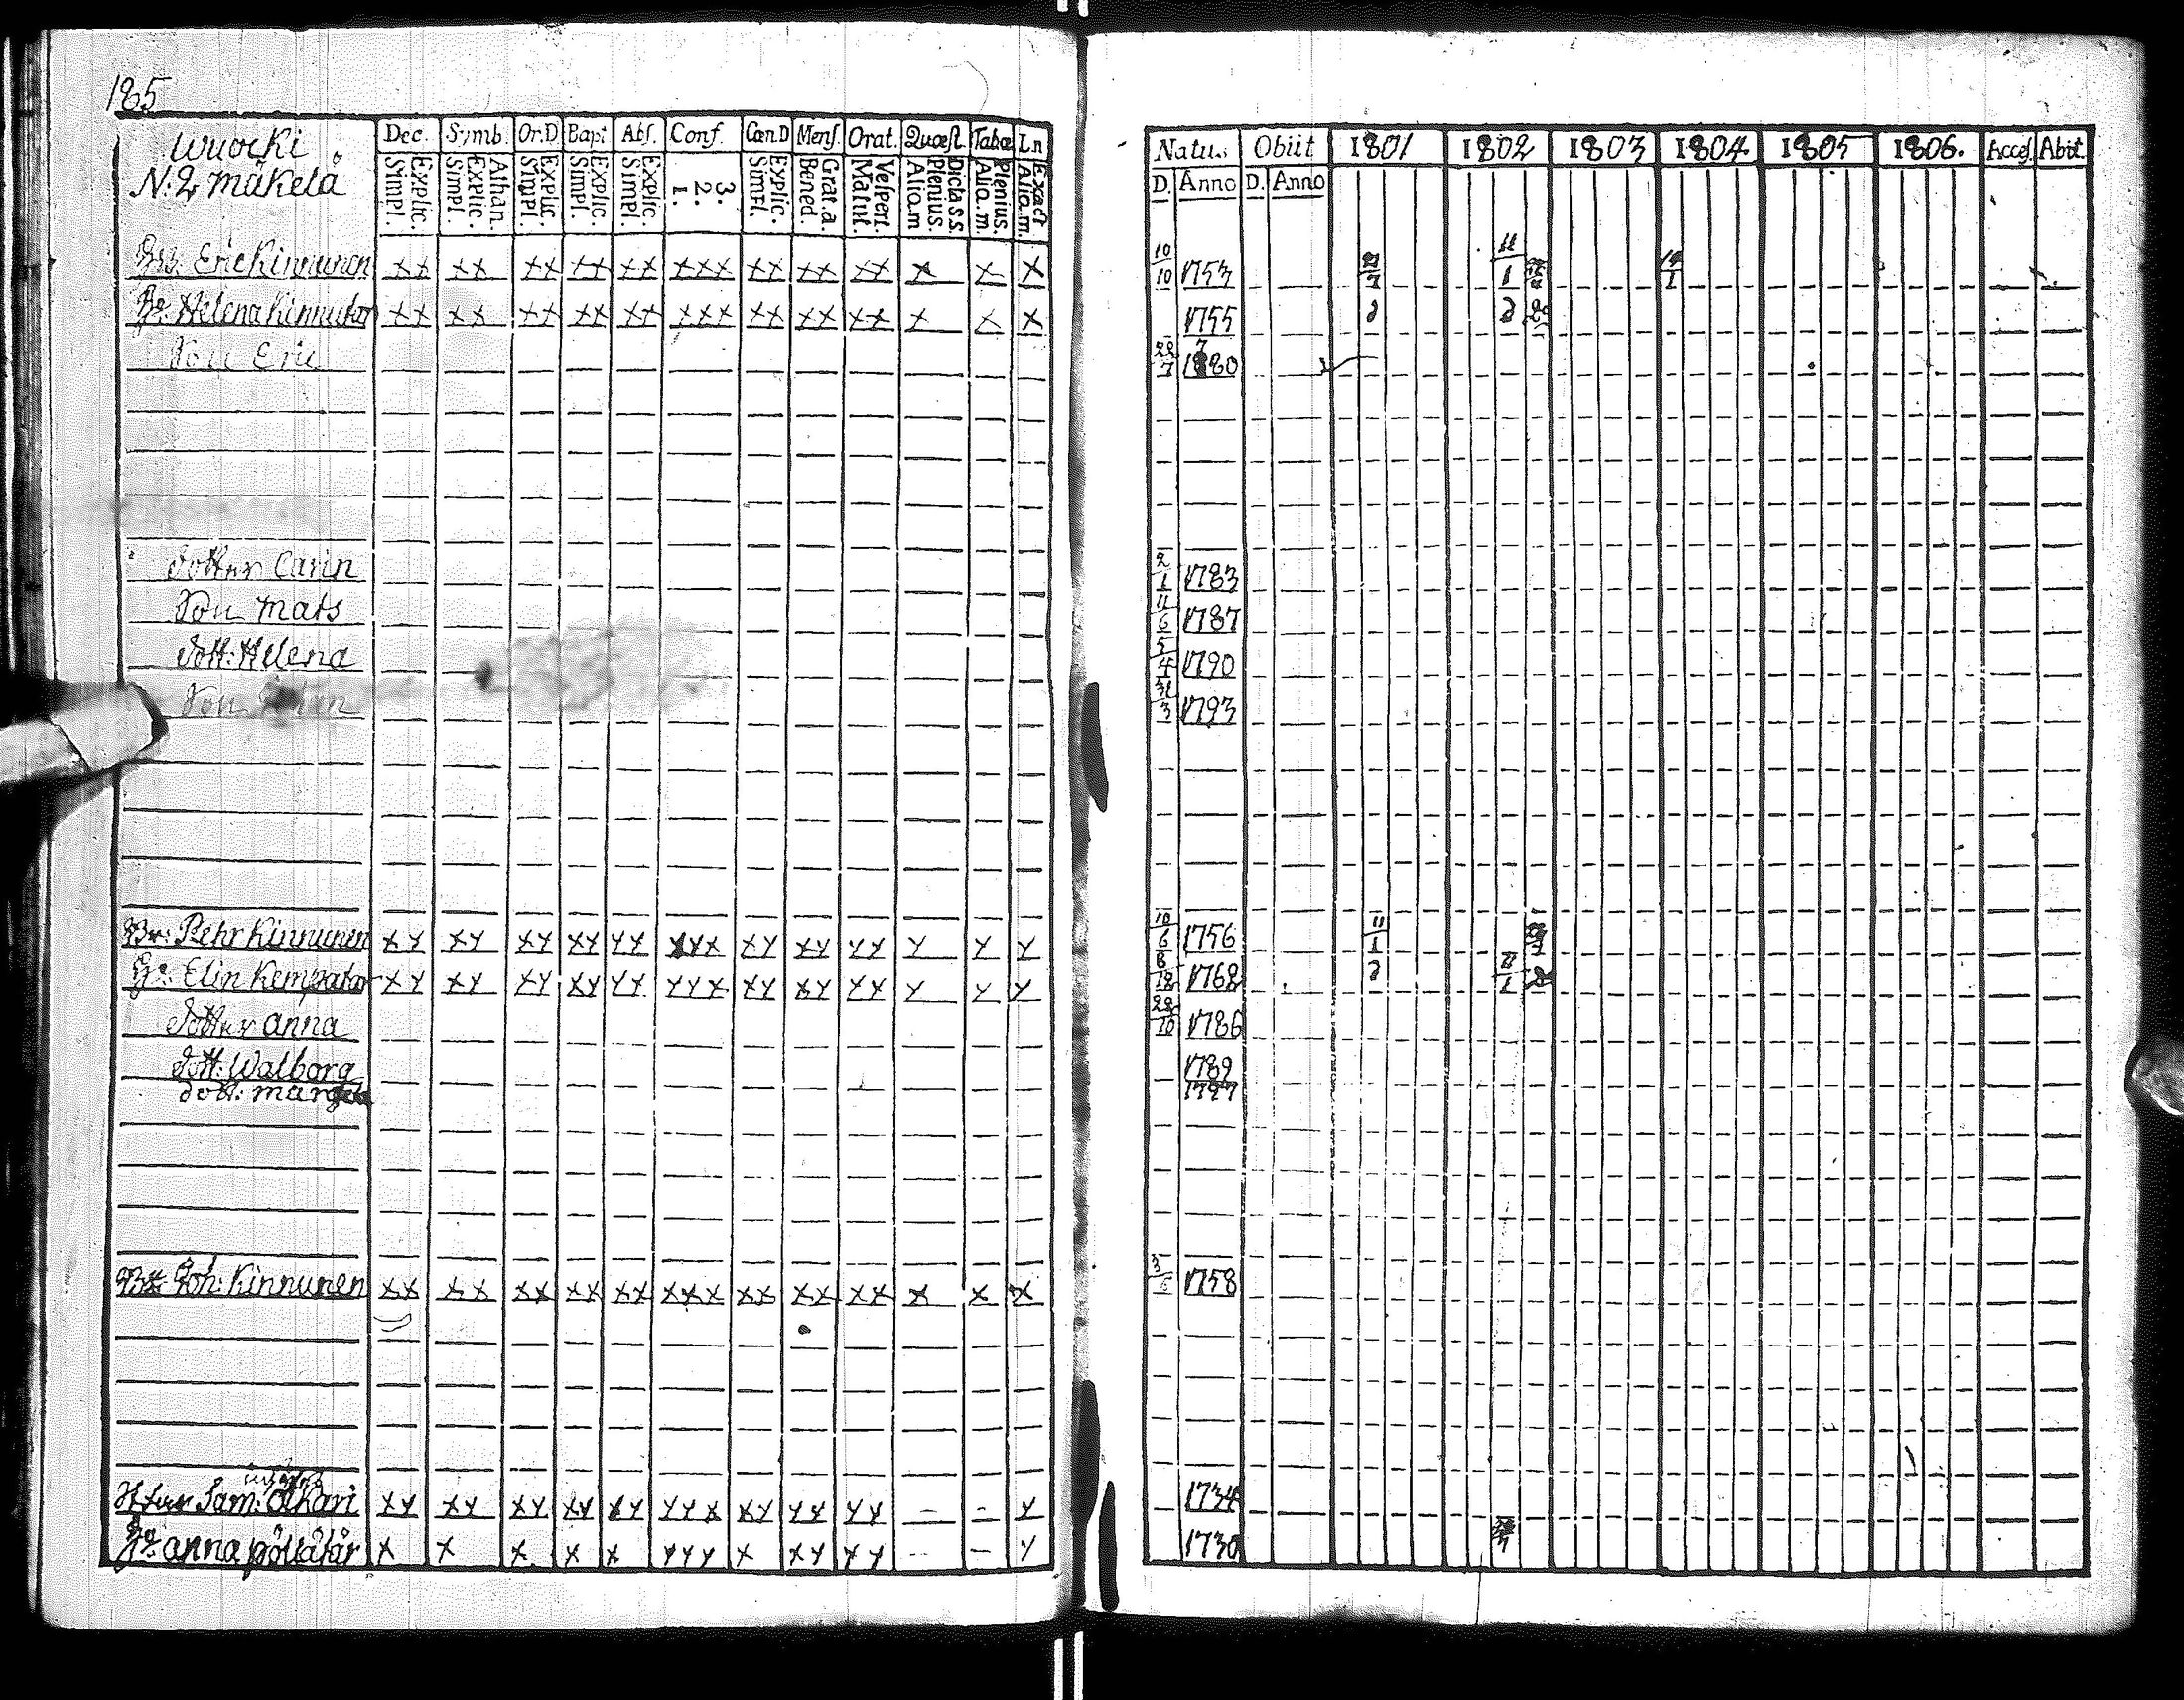 185
Wuocki
N:2 Mäkelä
Dec. Symb. Or.D Bapt Abs. Conf. Cœn.D Mens. Orat. Quæst. Tabæ Ln
Explic. Simpl. Athan. Explic. Simpl. Explic. Simpl. Explic. Simpl. Explic. Simpl. 3. 2. 1. Explic. Simpl. Grat. a. Bened. Vespert. Matut. Dictass Plenius. Aliq. m Plenius. Aliq. m. Exact Aliq. m.
Natu. Obiit 1801 1802 1803 1804 1805 1806. Acces. Abit.
D. Anno D. Anno
Eric Kinnunen xx xx xx xx xx xxx xx xx xx x x x 10/10 1753
Helena Kinnutar xx xx xx xx xx xxx xx xx xx x x x 1755
Son Eric 22/7 1780
Dotter Carin 2/1 1783
Son Mats 11/6 1787
Dott: Helena 5/4 1790
Son 1793
Br: Pehr Kinnunen xx xx xx xx xx xxx xx xx xx x x x 10/6 1756 11/1
Elin Kempatar xx xx xx xx xx xxx xx xx xx x x x 8/12 1762
Dotter Anna 22/10 1786
Dott: Walborg 1789
Dott: Marg 1797
Joh: Kinnunen xx xx xx xx xx xxx xx xx xx x x x 1758
Sam: xx xx xx xx xx xxx xx xx xx – – x 1734
Anna x x x x x xxx x xx xx – – x 1730